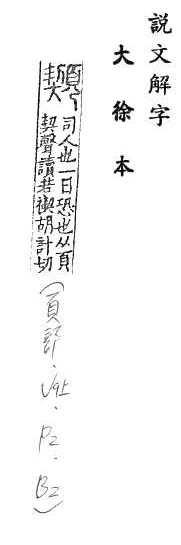 說文解字
大徐本
䫔
司人也一曰恐也从頁
契聲讀若禊胡計切
(頁部．九上．P2．B2)